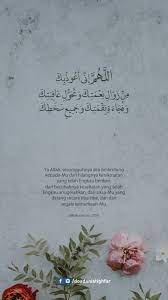 اللَّهُمَّ إِنِّي أَعُوذُ بِكَ
مِنْ زَوَالِ نِعْمَتِكَ وَتَحَوُّلِ عَافِيَتِكَ
وَفُجَاءَةِ نِقْمَتِكَ وَجَمِيعِ سَخَطِكَ
Ya Allah, sesungguhnya aku berlindung
kepada-Mu dari hilangnya kenikmatan
yang telah Engkau berikan,
dari berubahnya kesehatan yang telah
Engkau anugerahkan, dari siksa-Mu yang
datang secara tiba-tiba, dan dari
segala kemurkaan-Mu.
/doaLuasHighfar